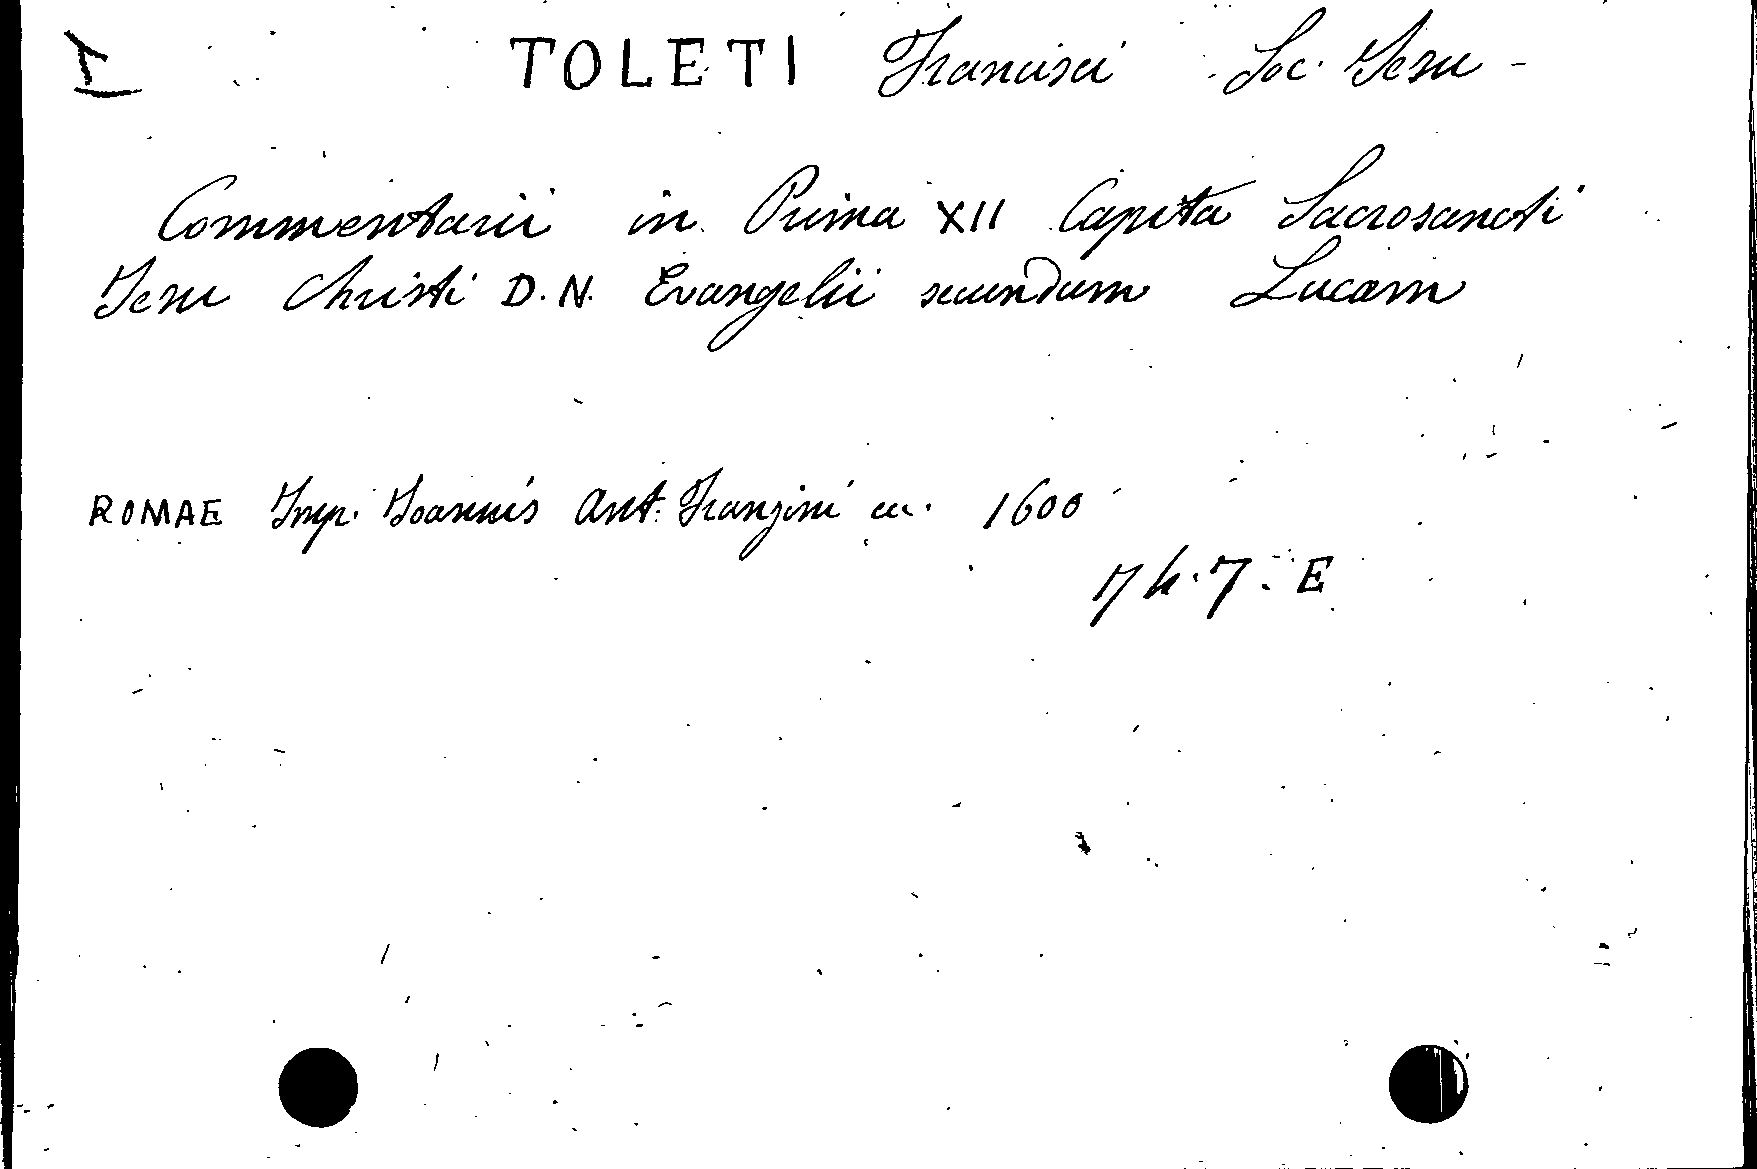 I TOLETI Francisci Soc. Iesu -
Commentarii in Prima XII Capita Sacrosancti
Iesu Christi D.N. Evangelii secundum Lucam
ROMAE Imp. Ioannis Ant. Franzini 1600
7.E